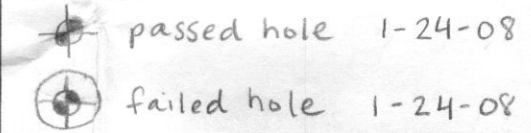 passed hole 1-24-08
failed hole 1-24-08